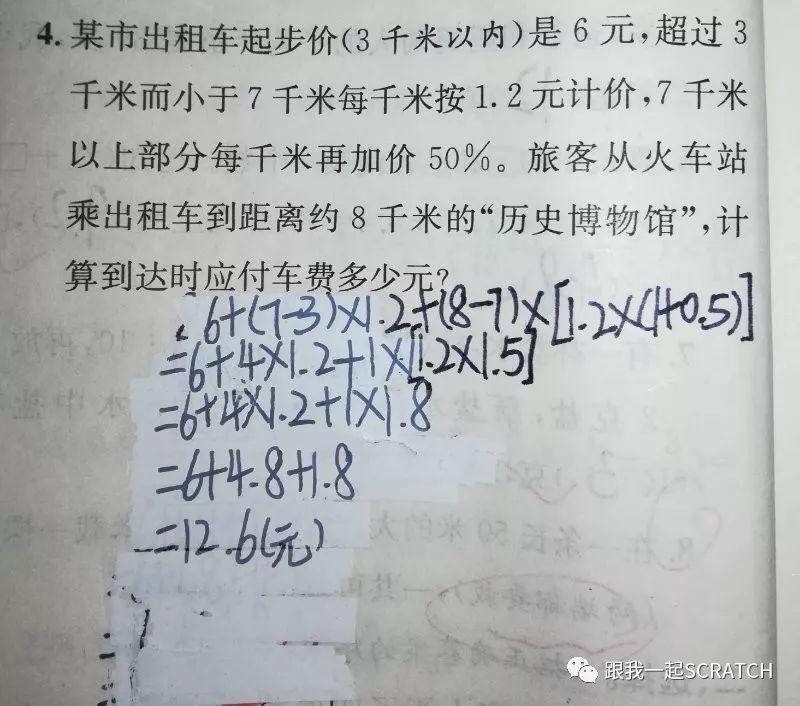 4. 某市出租车起步价(3 千米以内)是 6 元,超过 3
千米而小于 7 千米每千米按 1.2 元计价,7 千米
以上部分每千米再加价 50%。旅客从火车站
乘出租车到距离约 8 千米的“历史博物馆”,计
算到达时应付车费多少元?
6+(7-3)×1.2+(8-7)×[1.2×(1+0.5)]
=6+4×1.2+1×[1.2×1.5]
=6+4×1.2+1×1.8
=6+4.8+1.8
=12.6(元)
跟我一起SCRATCH